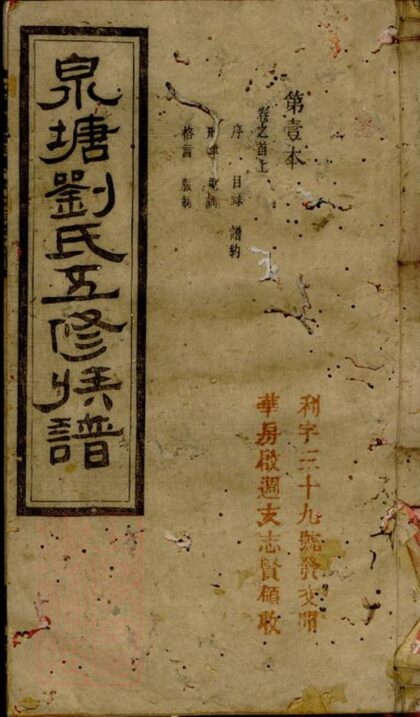 第壹本
卷之首上
序 目錄 譜約
家訓
格言 服制
利字三十九號發交開
華房啟週亥志賢領收
泉塘劉氏五修族譜